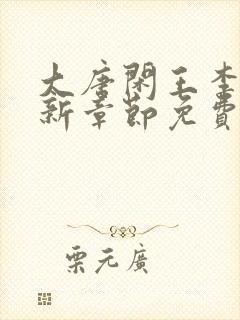 太唐閑王李
新章節免費
栗元廣